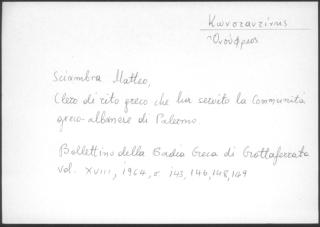 Κωνσταντίνης
Ὀνούφριος
Sciambra Matteo,
Clero di rito greco che ha servito la Comunità
greco-albanese di Palermo.
Bollettino della Badia Greca di Grottaferrata
vol. XVIII, 1964, σ. 143, 146, 148, 149